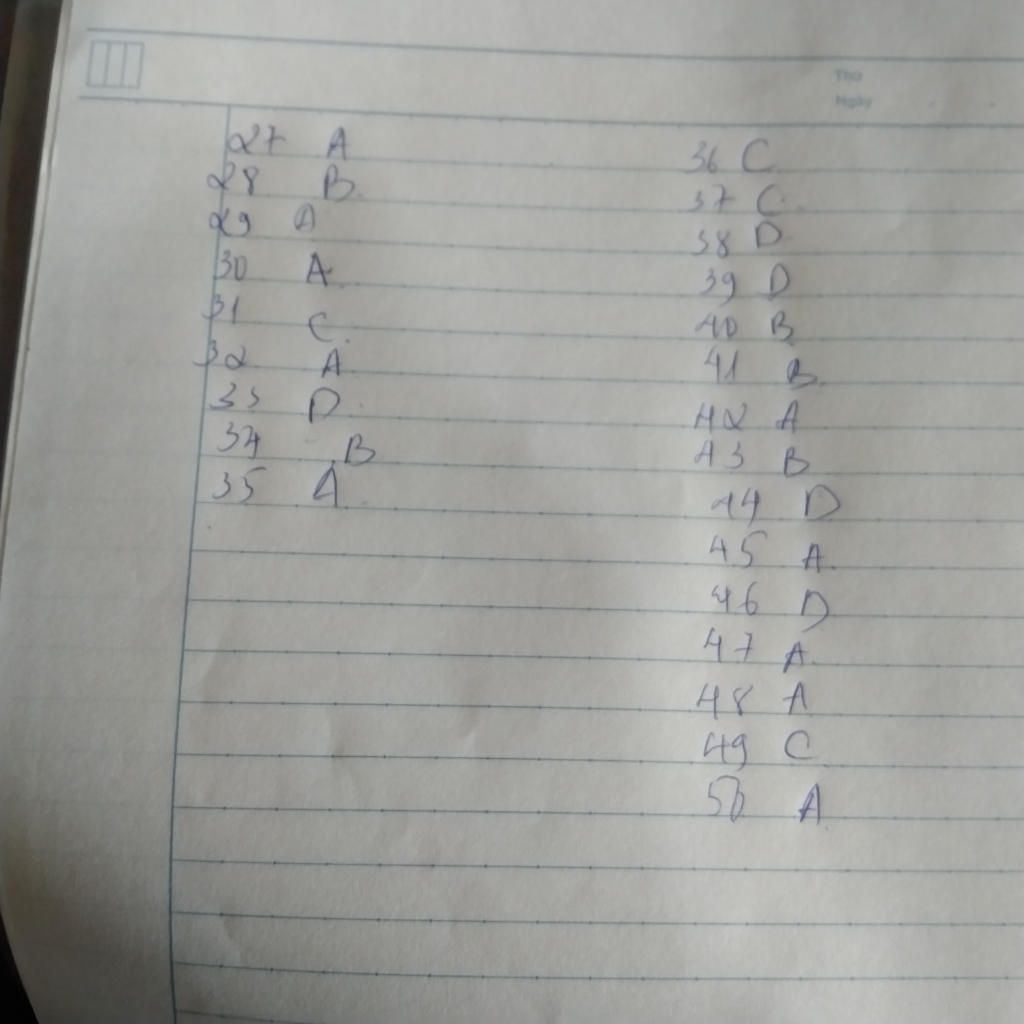 Thứ
Ngày
27 A
28 B
29 A
30 A
31 C
32 A
33 D
34 B
35 A
36 C
37 C
38 D
39 D
40 B
41 B
42 A
43 B
44 D
45 A
46 D
47 A
48 A
49 C
50 A